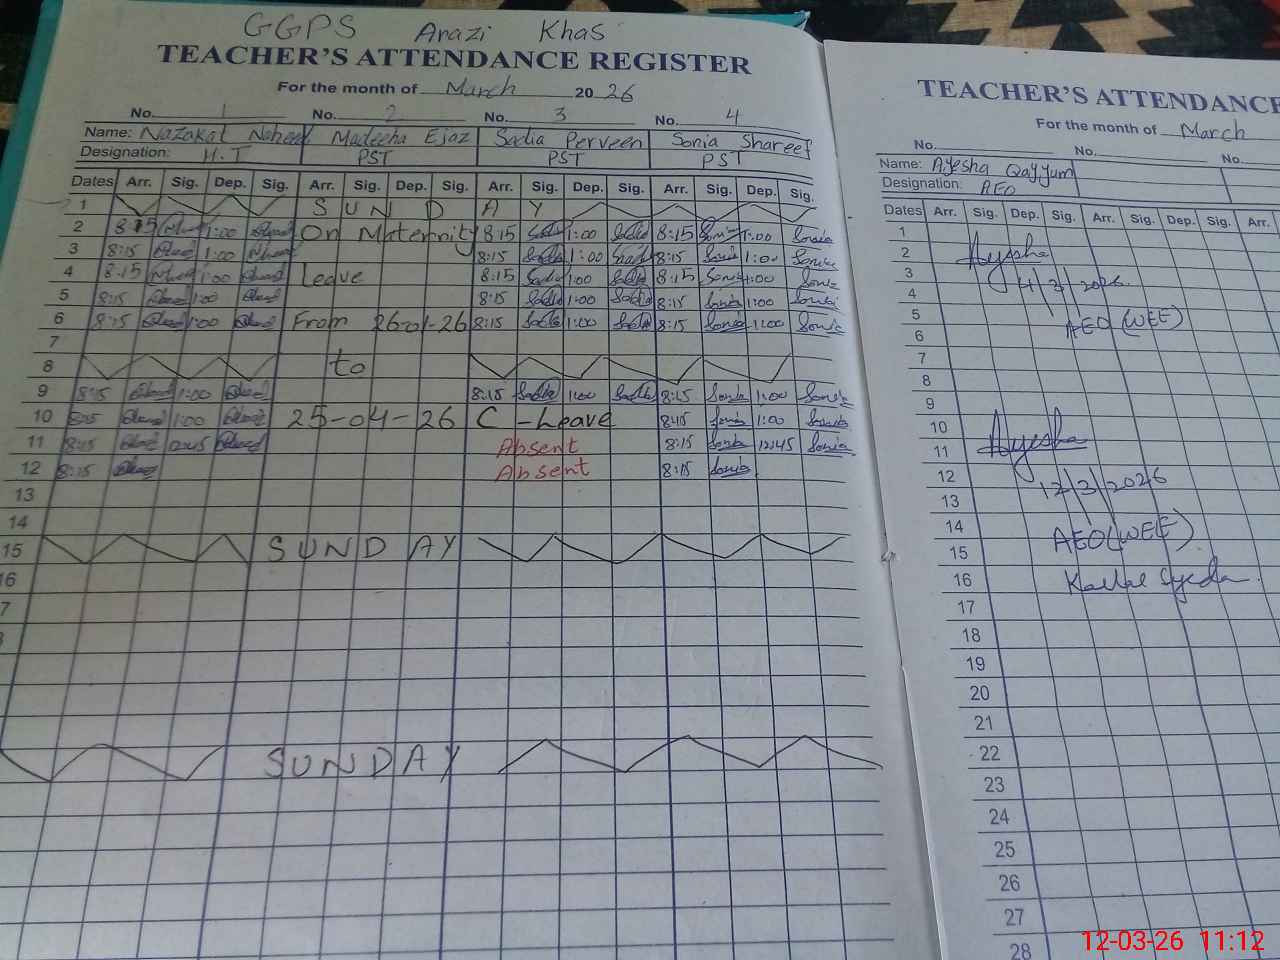 GGPS Arazi Khas
TEACHER'S ATTENDANCE REGISTER
For the month of March 2026
No. 1 No. 2 No. 3 No. 4
Name: Nazakat Naheed Madeeha Ejaz Sadia Perveen Sonia Shareef
Designation: H.T PST PST PST
Dates Arr. Sig. Dep. Sig. Arr. Sig. Dep. Sig. Arr. Sig. Dep. Sig. Arr. Sig. Dep. Sig.
1 SUNDAY
2 8:15 1:00 On Maternity 8:15 Sadia 1:00 Sadia 8:15 Sonia 1:00 Sonia
3 8:15 1:00 8:15 Sadia 1:00 Sadia 8:15 Sonia 1:00 Sonia
4 8:15 1:00 Leave 8:15 Sadia 1:00 Sadia 8:15 Sonia 1:00 Sonia
5 8:15 1:00 8:15 Sadia 1:00 Sadia 8:15 Sonia 1:00 Sonia
6 8:15 1:00 From 26-01-26 8:15 Sadia 1:00 Sadia 8:15 Sonia 1:00 Sonia
7
8 to
9 8:15 1:00 8:15 Sadia 1:00 Sadia 8:15 Sonia 1:00 Sonia
10 8:15 1:00 25-04-26 C-Leave 8:15 Sonia 1:00 Sonia
11 8:15 12:45 Absent 8:15 Sonia 12:45 Sonia
12 8:15 Absent 8:15 Sonia
13
14
15 SUNDAY
16
7
SUNDAY
TEACHER'S ATTENDANCE
For the month of March
No. No. No.
Name: Ayesha Qayyum
Designation: AEO
Dates Arr. Sig. Dep. Sig. Arr. Sig. Dep. Sig. Arr.
1
2 Ayesha
3 4/3/2026
4
5 AEO (WEE)
6
7
8
9
10
11 Ayesha
12 12/3/2026
13
14 AEO (WEE)
15
16 Kallar Syedan
17
18
19
20
21
22
23
24
25
26
27
28
12-03-26 11:12